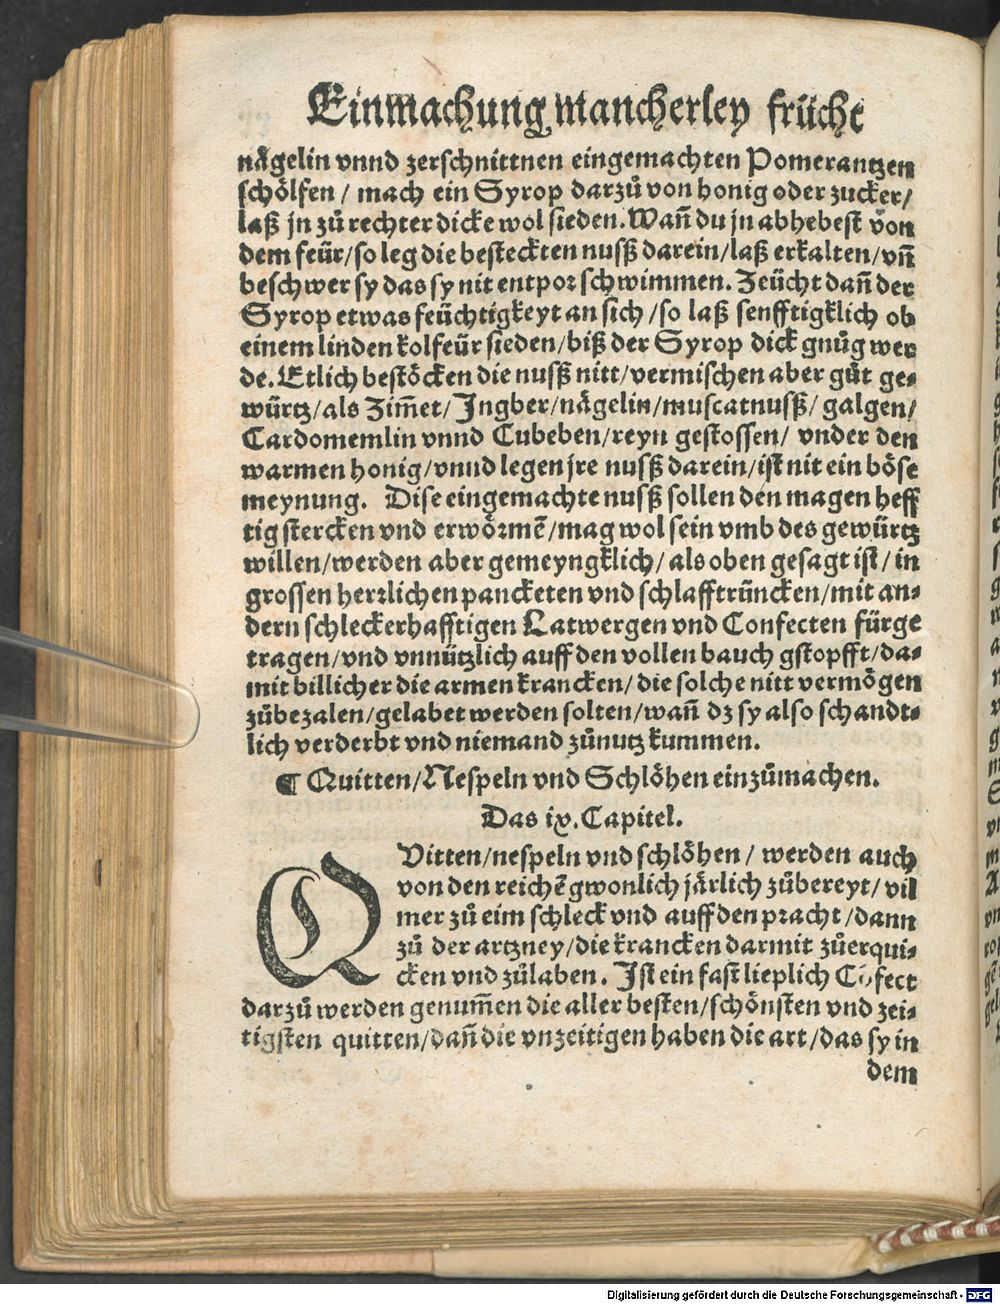 Einmachung mancherley früche
nägelin vnnd zerschnittnen eingemachten Pomerantzen
schölfen / mach ein Syrop darzů von honig oder zucker/
laß jn zů rechter dicke wol sieden. Wañ du jn abhebest von
dem feür/so leg die besteckten nusß darein/laß erkalten/vñ
beschwer sy das sy nit entpor schwimmen. Zeücht dañ der
Syrop etwas feüchtigkeyt an sich /so laß senfftigklich ob
einem linden kolfeür sieden/biß der Syrop dick gnůg wer
de. Etlich bestöcken die nusß nitt/vermischen aber gůt ge⸗
würtz/als Zim̃et/Ingber/nägelin/muscatnusß/ galgen/
Cardomemlin vnnd Cubeben/reyn gestossen/ vnder den
warmen honig/vnnd legen jre nusß darein/ist nit ein böse
meynung. Dise eingemachte nusß sollen den magen heff
tig stercken vnd erwörmẽ/mag wol sein vmb des gewürtz
willen/werden aber gemeyngklich/ als oben gesagt ist/ in
grossen herrlichen pancketen vnd schlafftrüncken/mit an⸗
dern schleckerhafftigen Latwergen vnd Confecten fürge
tragen/vnd vnnützlich auff den vollen bauch gstopfft/da⸗
mit billicher die armen krancken/ die solche nitt vermögen
zůbezalen/gelabet werden solten/wañ dz sy also schandt⸗
lich verderbt vnd niemand zůnutz kummen.
¶ Quitten/Nespeln vnd Schlöhen einzůmachen.
Das ix. Capitel.
QVitten/nespeln vnd schlöhen / werden auch
von den reichẽ gwonlich järlich zůbereyt/ vil
mer zů eim schleck vnd auff den pracht /dann
zů der artzney/die krancken darmit zůerqui⸗
cken vnd zůlaben. Ist ein fast lieplich Cõfect
darzů werden genum̃en die aller besten/schönsten vnd zei⸗
tigsten quitten/dañ die vnzeitigen haben die art/das sy in
dem
Digitalisierung gefördert durch die Deutsche Forschungsgemeinschaft - DFG